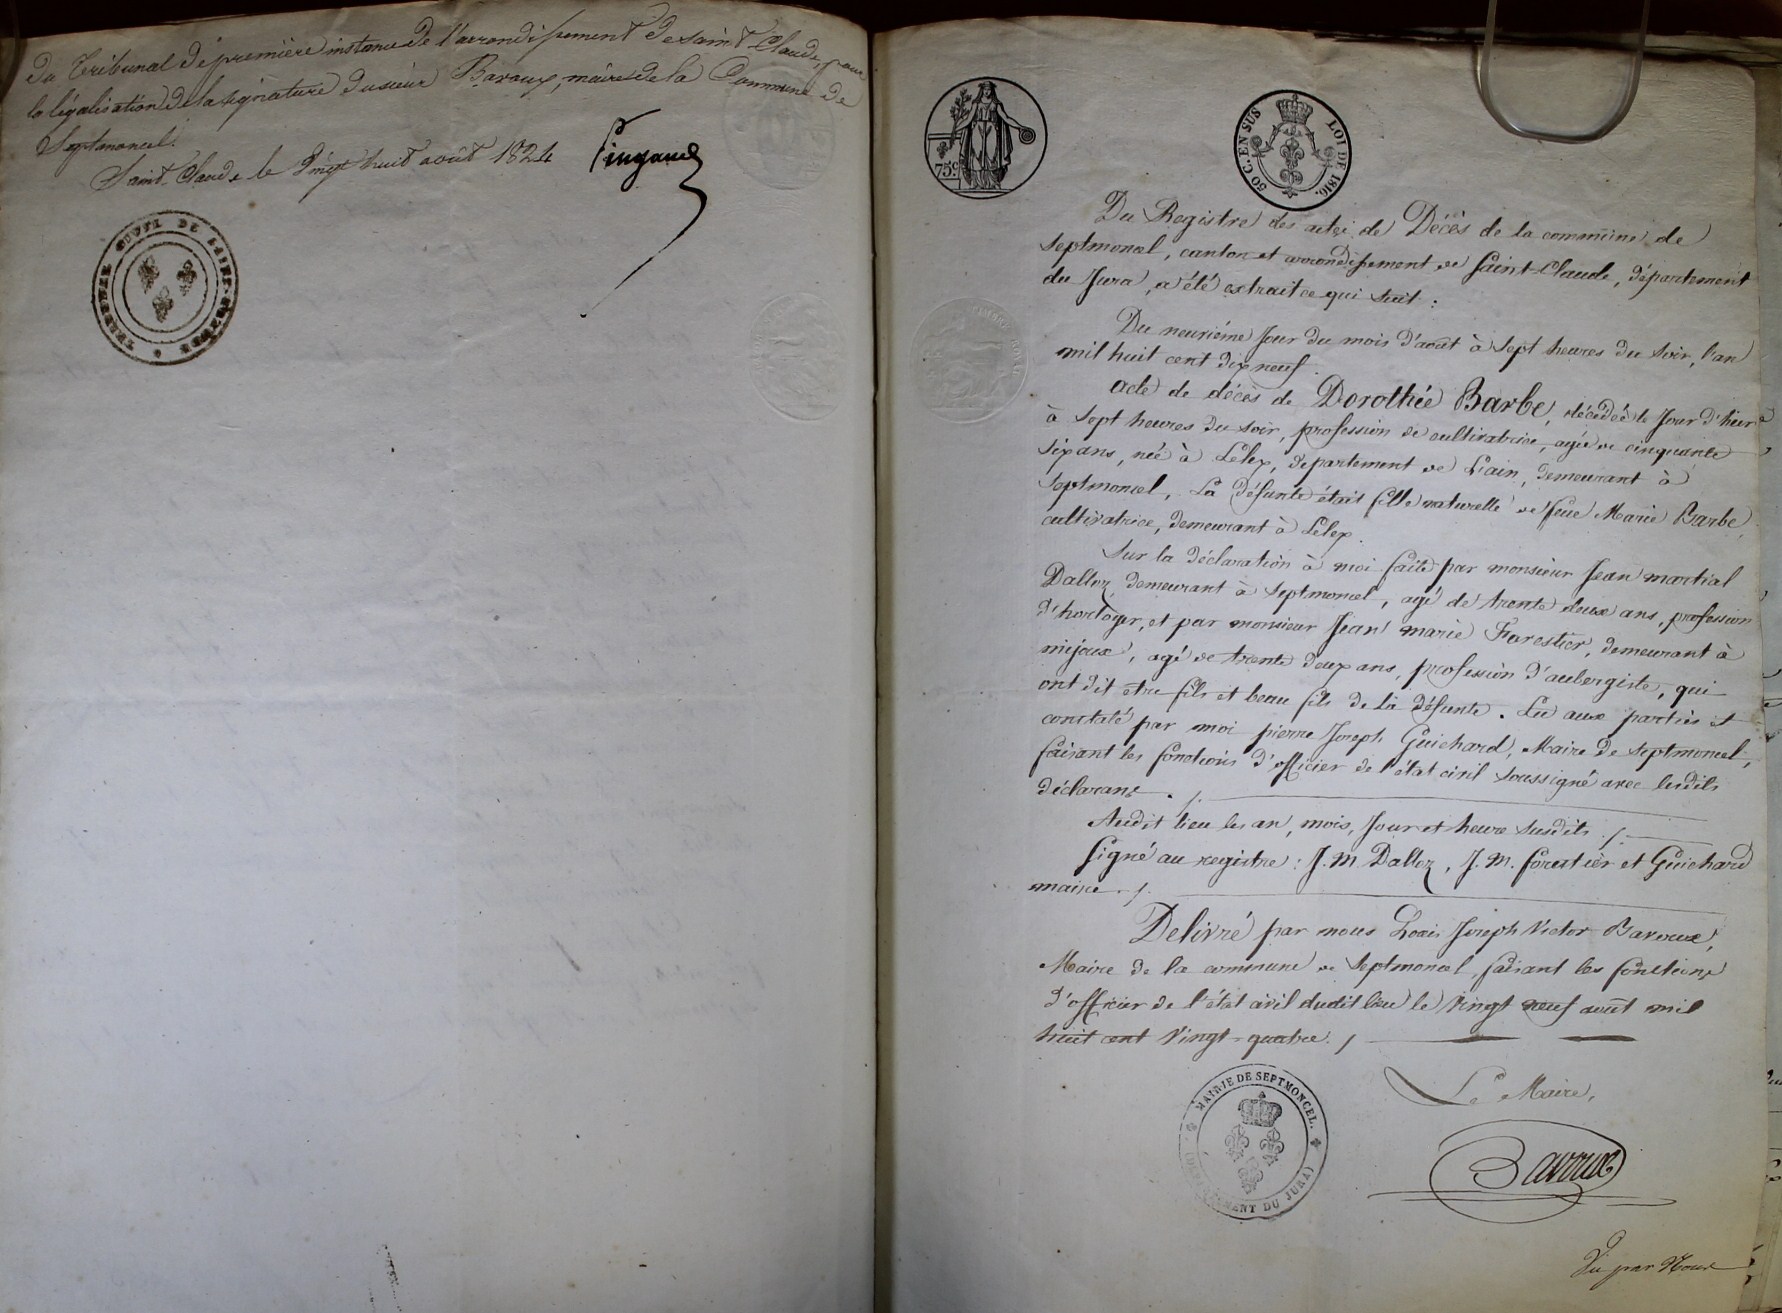 du Tribunal de première instance de l'arrondissement de Saint Claude, pour
la légalisation de la signature du sieur Bavoux, maire de la Commune de
Septmoncel.
Saint Claude le vingt huit août 1824
75 c.
50 C. EN SUS
LOI DE 1816.
Du Registre des actes de Décès de la commune de
Septmoncel, canton et arrondissement de Saint-Claude, département
du Jura, a été extrait ce qui suit :
Du neuvième Jour du mois d'août à sept heures du soir, l'an
mil huit cent dix neuf.
acte de décès de Dorothée Barbe, décédée le Jour d'hier
à sept heures du soir, profession de cultivatrice, agée de cinquante
six ans, née à Lélex, département de l'ain, demeurant à
Septmoncel, La défunte était fille naturelle de feue Marie Barbe,
cultivatrice, demeurant à Lélex.
Sur la déclaration à moi faite par monsieur Jean martial
Dalloz, demeurant à Septmoncel, agé de trente deux ans, profession
d'horloger, et par monsieur Jean marie Forestier, demeurant à
mijoux, agé de trente deux ans, profession d'aubergiste, qui
ont dit être fils et beau fils de la défunte. Lu aux parties et
constaté par moi pierre Joseph Guichard, Maire de septmoncel,
faisant les fonctions d'officier de l'état civil soussigné avec lesdits
déclarans ./.
Audit lieu les an, mois, Jour et heure susdits ./.
Signé au registre : J. M Dalloz, J. M. forestier et Guichard
maire ./.
Delivré par nous Louis Joseph Victor Bavoux,
Maire de la commune de Septmoncel, faisant les fonctions
d'officier de l'état civil dudit lieu le vingt neuf août mil
huit cent vingt-quatre. /
MAIRIE DE SEPTMONCEL.
(DEPARTEMENT DU JURA)
Le Maire,
Bavoux
Vu par Nous